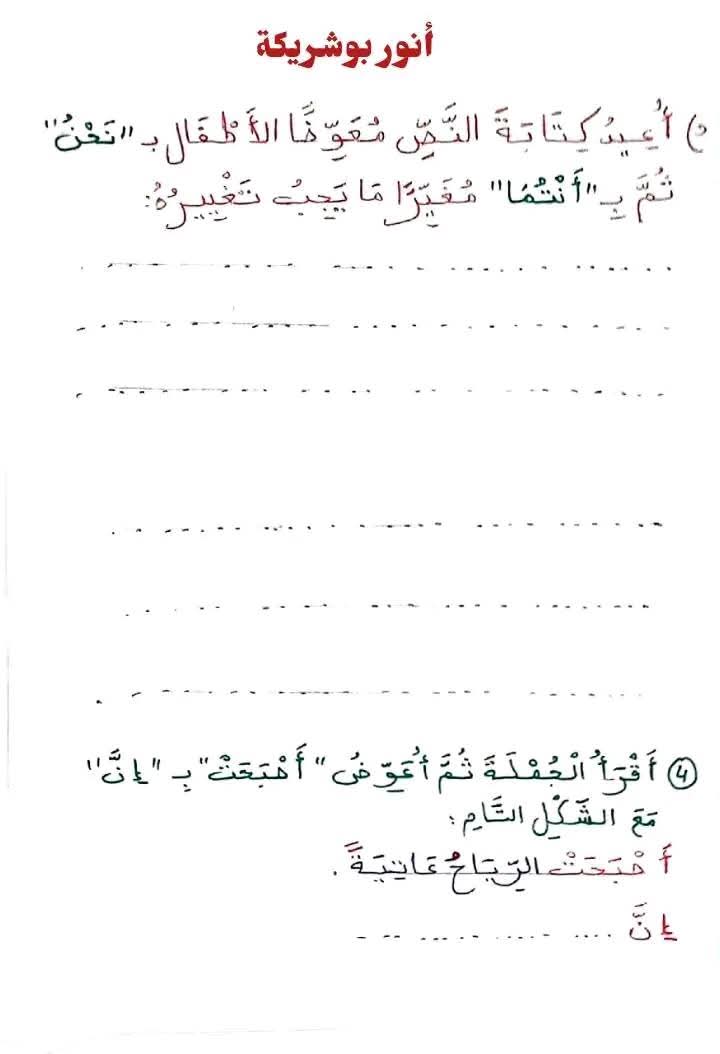 أنور بوشريكة
) أُعِيدُ كِتَابَةَ النَّصِّ مُعَوِّضًا الأَطْفَال بـ "نَحْنُ"
ثُمَّ بِـ "أَنْتُمَا" مُغَيِّرًا مَا يَجِبُ تَغْيِيرُهُ:
④ أَقْرَأُ الْجُمْلَةَ ثُمَّ أُعَوِّضُ "أَصْبَحَتْ" بِـ "إِنَّ"
مَعَ الشَّكْلِ التَّامِ:
أَصْبَحَتْ الرِّيَاحُ عَاتِيَةً.
إِنَّ .... ..... ..... ....